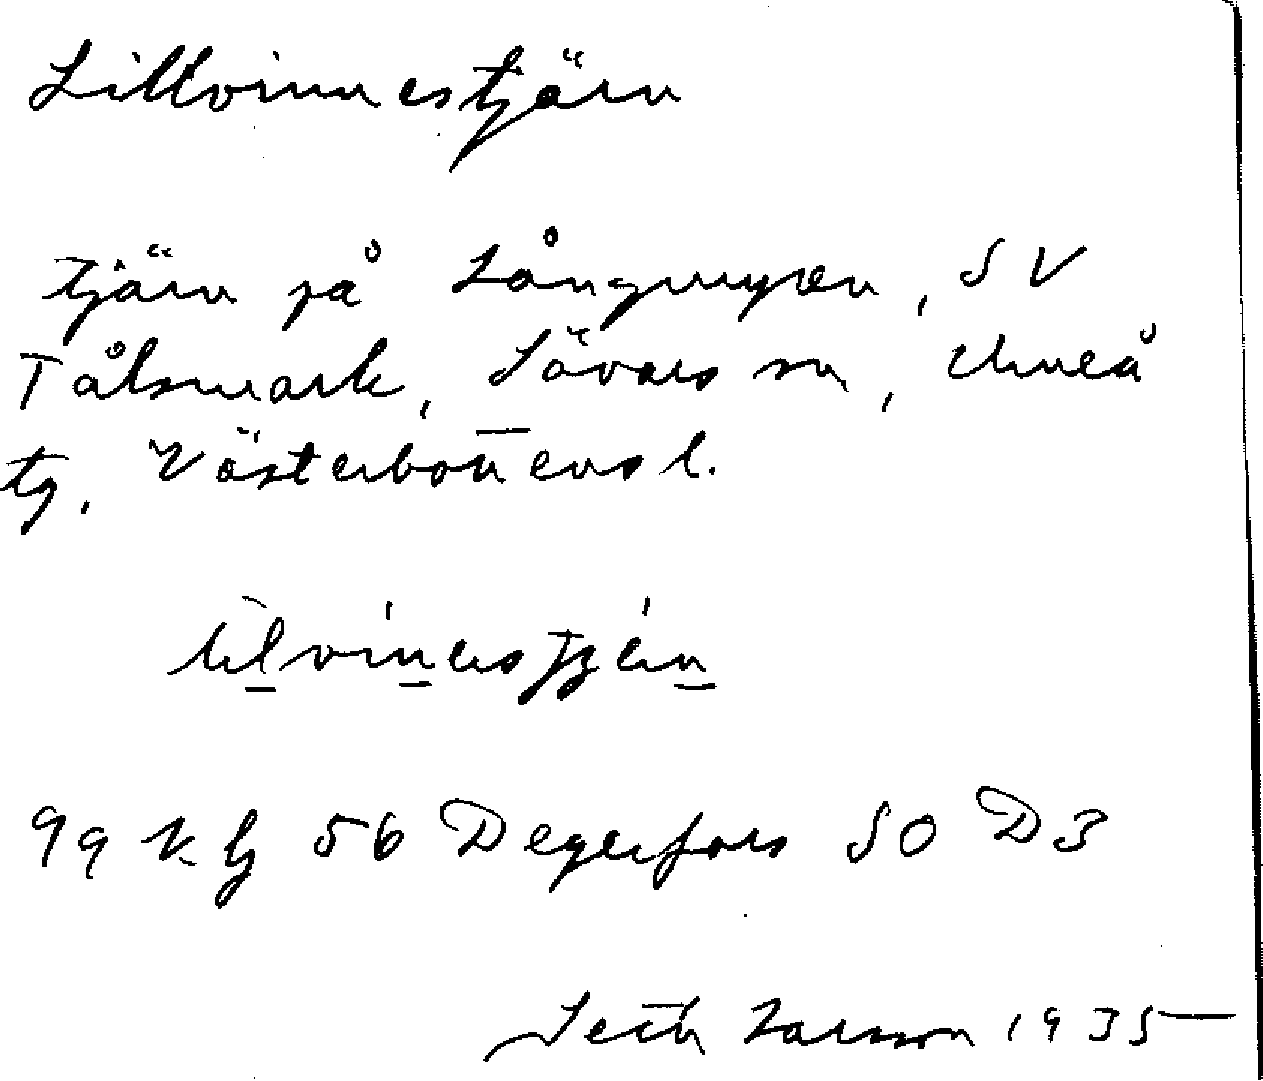 Lillvinnestjärn
tjärn på Långmyren, SV
Tålsmark, Sävars sn, Umeå
tg, Västerbottens l.
99 kg 56 Degerfors SO D3
Seth Larsson 1935